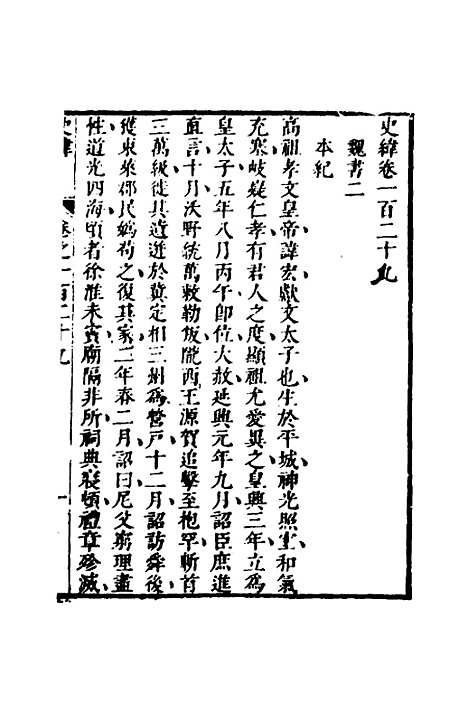 史緯卷一百二十九
魏書二
本紀
高祖孝文皇帝諱宏獻文太子也生於平城神光照室和氣
充塞岐嶷仁孝有君人之度顯祖尤愛異之皇興三年立爲
皇太子五年八月丙午卽位大赦延興元年九月詔臣庶進
直言十月沃野統萬敕勒叛隴西王源賀追擊至枹罕斬首
三萬級徙其遺迸於冀定相三州爲營戸十二月詔訪舜後
獲東萊郡民嬀苟之復其家二年春二月詔曰尼父窮理盡
性道光四海頃者徐淮未賓廟隔非所祠典寢頓禮章殄滅
史緯 卷之一百二十九 一